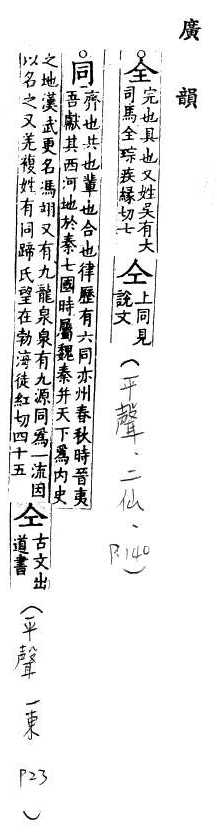 廣韻
○全
完也具也又姓吳有大
司馬全琮疾緣切七
仝
上同見
說文
（平聲、二仙、P.140）
○同
齊也共也輩也合也律歷有六同亦州春秋時晉夷
吾獻其西河地於秦七國時屬魏秦并天下爲內史
之地漢武更名馮翊又有九龍泉泉有九源同爲一流因
以名之又羌複姓有同蹄氏望在勃海徒紅切四十五
仝
古文出
道書
（平聲 一東 P23）